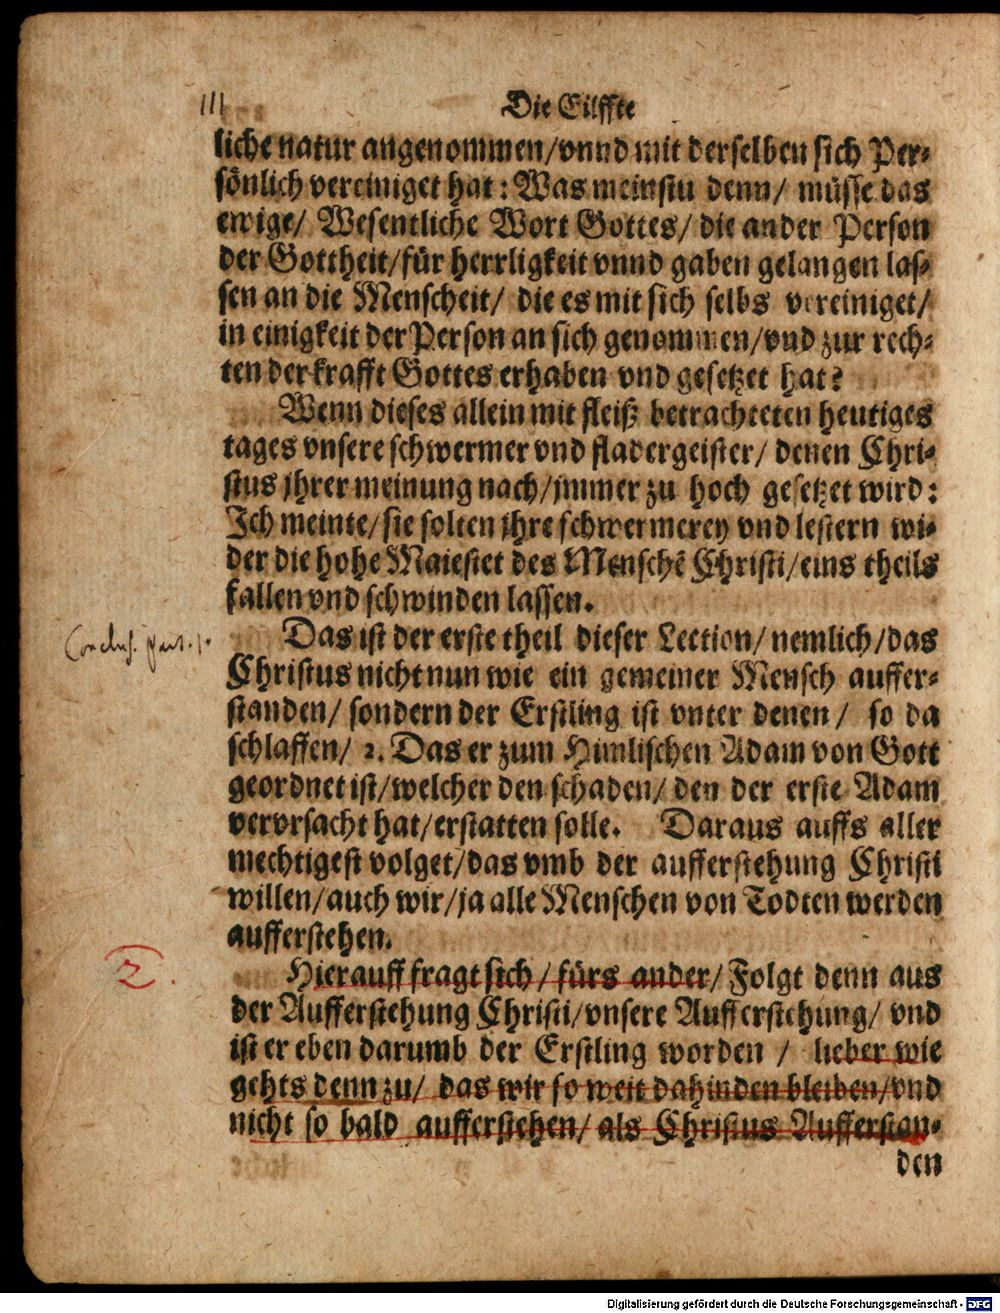 111
Die Eilffte
liche natur angenommen/vnnd mit derselben sich Per-
sönlich vereiniget hat: Was meinstu denn/ müsse das
ewige/ Wesentliche Wort Gottes/ die ander Person
der Gottheit/für herrligkeit vnnd gaben gelangen las-
sen an die Menscheit/ die es mit sich selbs vereiniget/
in einigkeit der Person an sich genommen/vnd zur rech-
ten der krafft Gottes erhaben vnd gesetzet hat?
Wenn dieses allein mit fleiß betrachteten heutiges
tages vnsere schwermer vnd fladergeister/ denen Chri-
stus jhrer meinung nach/jmmer zu hoch gesetzet wird:
Ich meinte/sie solten jhre schwermerey vnd lestern wi-
der die hohe Maiestet des Menschẽ Christi/eins theils
fallen vnd schwinden lassen.
Das ist der erste theil dieser Lection/ nemlich/das
Conclus. part. 1.
Christus nicht nun wie ein gemeiner Mensch auffer-
standen/ sondern der Erstling ist vnter denen/ so da
schlaffen/ 2. Das er zum Himlischen Adam von Gott
geordnet ist/welcher den schaden/ den der erste Adam
vervrsacht hat/erstatten solle. Daraus auffs aller
mechtigest volget/das vmb der aufferstehung Christi
willen/auch wir/ja alle Menschen von Todten werden
aufferstehen.
2.
Hierauff fragt sich/fürs ander/ Folgt denn aus
der Aufferstehung Christi/vnsere Aufferstehung/ vnd
ist er eben darumb der Erstling worden / lieber wie
gehts denn zu/ das wir so weit dahinden bleiben/vnd
nicht so bald aufferstehen/ als Christus Aufferstan-
den
Digitalisierung gefördert durch die Deutsche Forschungsgemeinschaft - DFG